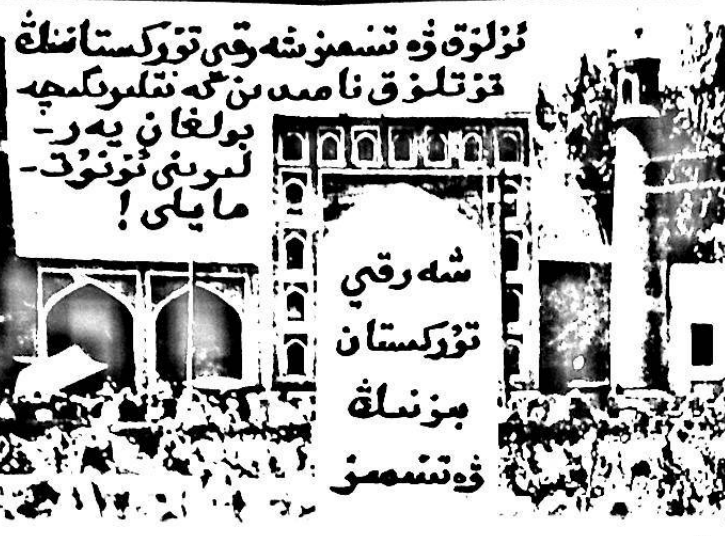 ئۇلۇق ۋەتىنىمىز شەرقىي تۈركىستاننىڭ
تۇتلۇق نامىدىن
بولغان يەر-
ئۇنۇت-
مايلى!
شەرقىي
تۈركىستان
بىزنىڭ
ۋەتىنىمىز